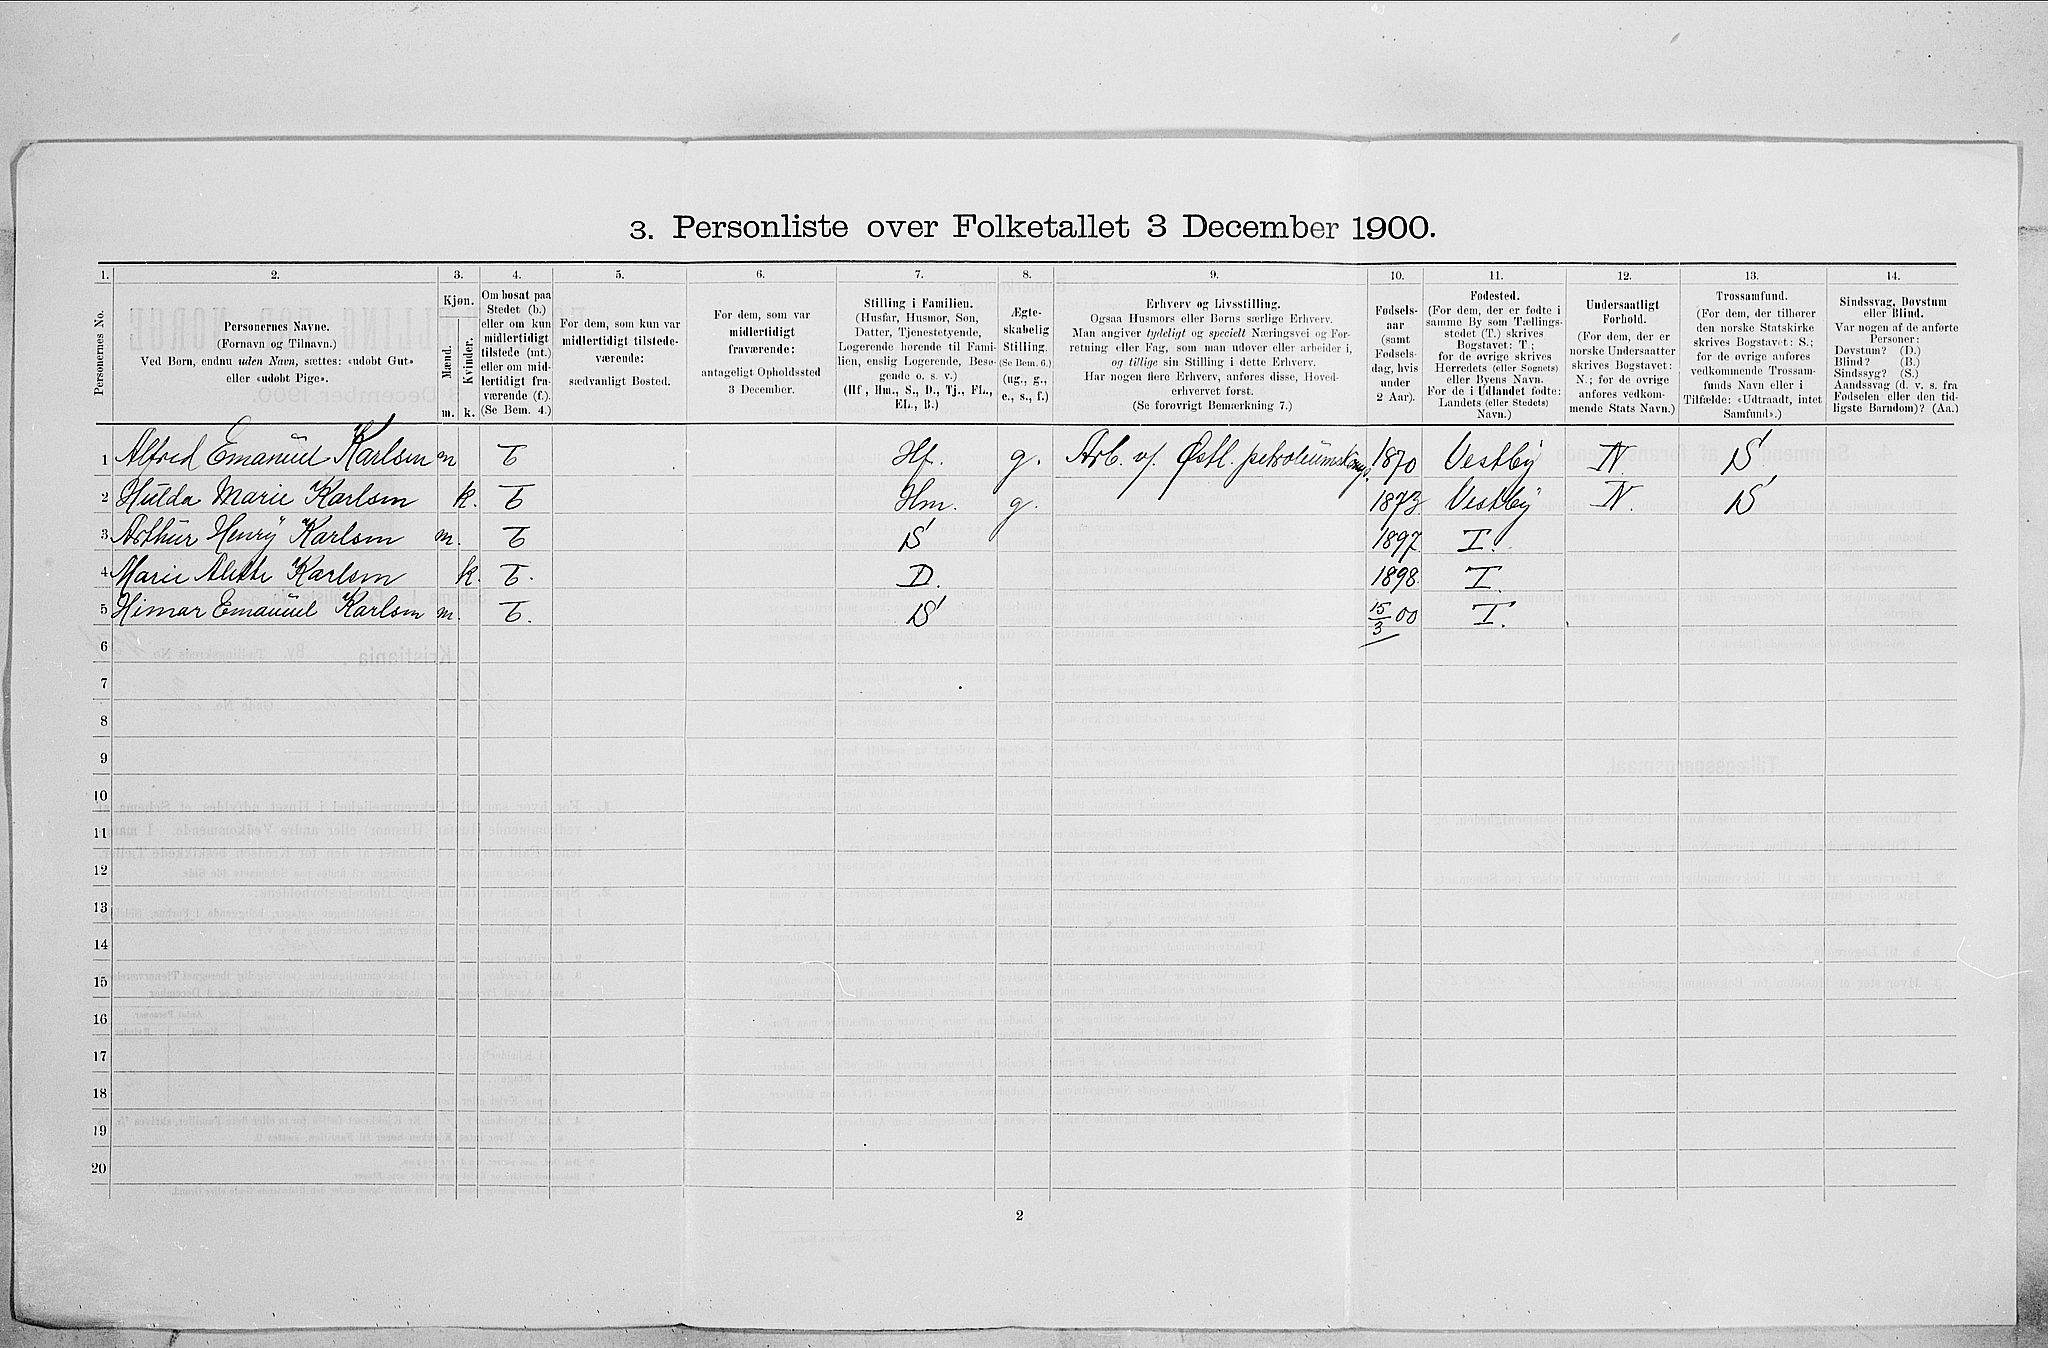 3. Personliste over Folketallet 3 December 1900.
1. 2. 3. 4. 5. 6. 7. 8. 9. 10. 11. 12. 13. 14.
Personernes No.
Personernes Navne.
(Fornavn og Tilnavn.)
Ved Børn, endnu uden Navn, sættes: «udøbt Gut»
eller «udøbt Pige».
Kjøn.
Mænd.
Kvinder.
m. k.
Om bosat paa
Stedet (b.)
eller om kun
midlertidigt
tilstede (mt.)
eller om mid-
lertidigt fra-
værende (f.).
(Se Bem. 4.)
For dem, som kun var
midlertidigt tilstede-
værende:
sædvanligt Bosted.
For dem, som var
midlertidigt
fraværende:
antageligt Opholdssted
3 December.
Stilling i Familien.
(Husfar, Husmor, Søn,
Datter, Tjenestetyende,
Logerende hørende til Fami-
lien, enslig Logerende, Besø-
gende o. s. v.)
(Hf., Hm., S., D., Tj., FL.,
EL., B.)
Ægte-
skabelig
Stilling.
(Se Bem. 6.)
(ug., g.,
e., s., f.)
Erhverv og Livsstilling.
Ogsaa Husmors eller Børns særlige Erhverv.
Man angiver tydeligt og specielt Næringsvei og For-
retning eller Fag, som man udøver eller arbeider i,
og tillige sin Stilling i dette Erhverv.
Har nogen flere Erhverv, anføres disse, Hoved-
erhvervet først.
(Se forøvrigt Bemærkning 7.)
Fødsels-
aar
(samt
Fødsels-
dag, hvis
under
2 Aar).
Fødested.
(For dem, der er fødte i
samme By som Tællings-
stedet (T.) skrives
Bogstavet: T;
for de øvrige skrives
Herredets (eller Sognets)
eller Byens Navn.
For de i Udlandet fødte:
Landets (eller Stedets)
Navn.)
Undersaatligt
Forhold.
(For dem, der er
norske Undersaatter
skrives Bogstavet:
N.; for de øvrige
anføres vedkom-
mende Stats Navn.)
Trossamfund.
(For dem, der tilhører
den norske Statskirke
skrives Bogstavet: S.;
for de øvrige anføres
vedkommende Trossam-
funds Navn eller i
Tilfælde: «Udtraadt, intet
Samfund».)
Sindssvag, Døvstum
eller Blind.
Var nogen af de anførte
Personer:
Døvstum? (D.)
Blind? (B.)
Sindssyg? (S.)
Aandssvag (d. v. s. fra
Fødselen eller den tid-
ligste Barndom)? (Aa.)
1 Alfred Emanuel Karlsen m b Hf. g. Arb. v/ Østl. petroleumskomp. 1870 Vestby N S
2 Hulda Marie Karlsen k. b Hm. g. 1873 Vestby N. S
3 Arthur Henry Karlsen m. b S 1897 T.
4 Marie Karlsen k. b. D. 1898. T.
5 Himar Emanuel Karlsen m. b. S 15/3 00 T.
6
7
8
9
10
11
12
13
14
15
16
17
18
19
20
2